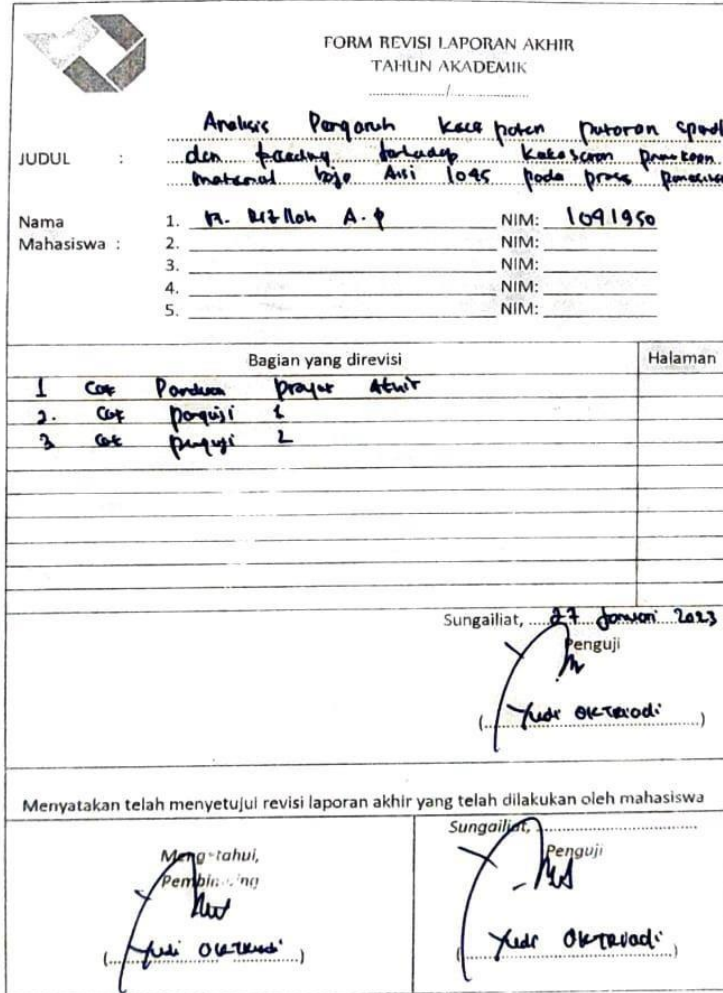 FORM REVISI LAPORAN AKHIR
TAHUN AKADEMIK
..................../....................
JUDUL :
Analisis Pengaruh kecepatan putaran spindl
dan feeding terhadap kekasaran
material baja Aisi 1045 pada proses
Nama
Mahasiswa :
1. A. P NIM: 1041950
2. NIM:
3. NIM:
4. NIM:
5. NIM:
Bagian yang direvisi Halaman
1 Cek Panduan proyek Akhir
2. Cek penguji 1
3 Cek penguji 2
Sungailiat, 27 Januari 2023
Penguji
(Yudi OKTRIADI)
Menyatakan telah menyetujui revisi laporan akhir yang telah dilakukan oleh mahasiswa
Mengetahui,
Pembimbing
(Yudi OKTRIADI)
Sungailiat, ....................
Penguji
(Yudi OKTRIADI)